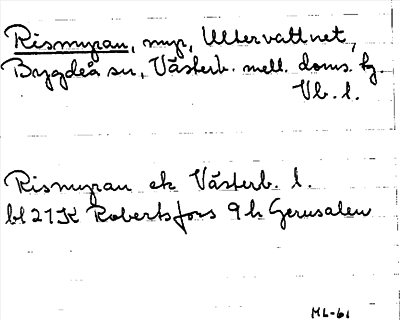 Rismyran, myr, Ultervattnet,
Bygdeå sn, Västerb. mell. doms. tg
Vb. l.
Rismyran ek Västerb. l.
bl 21K Robertsfors 9 h Gerusalem
ML-61